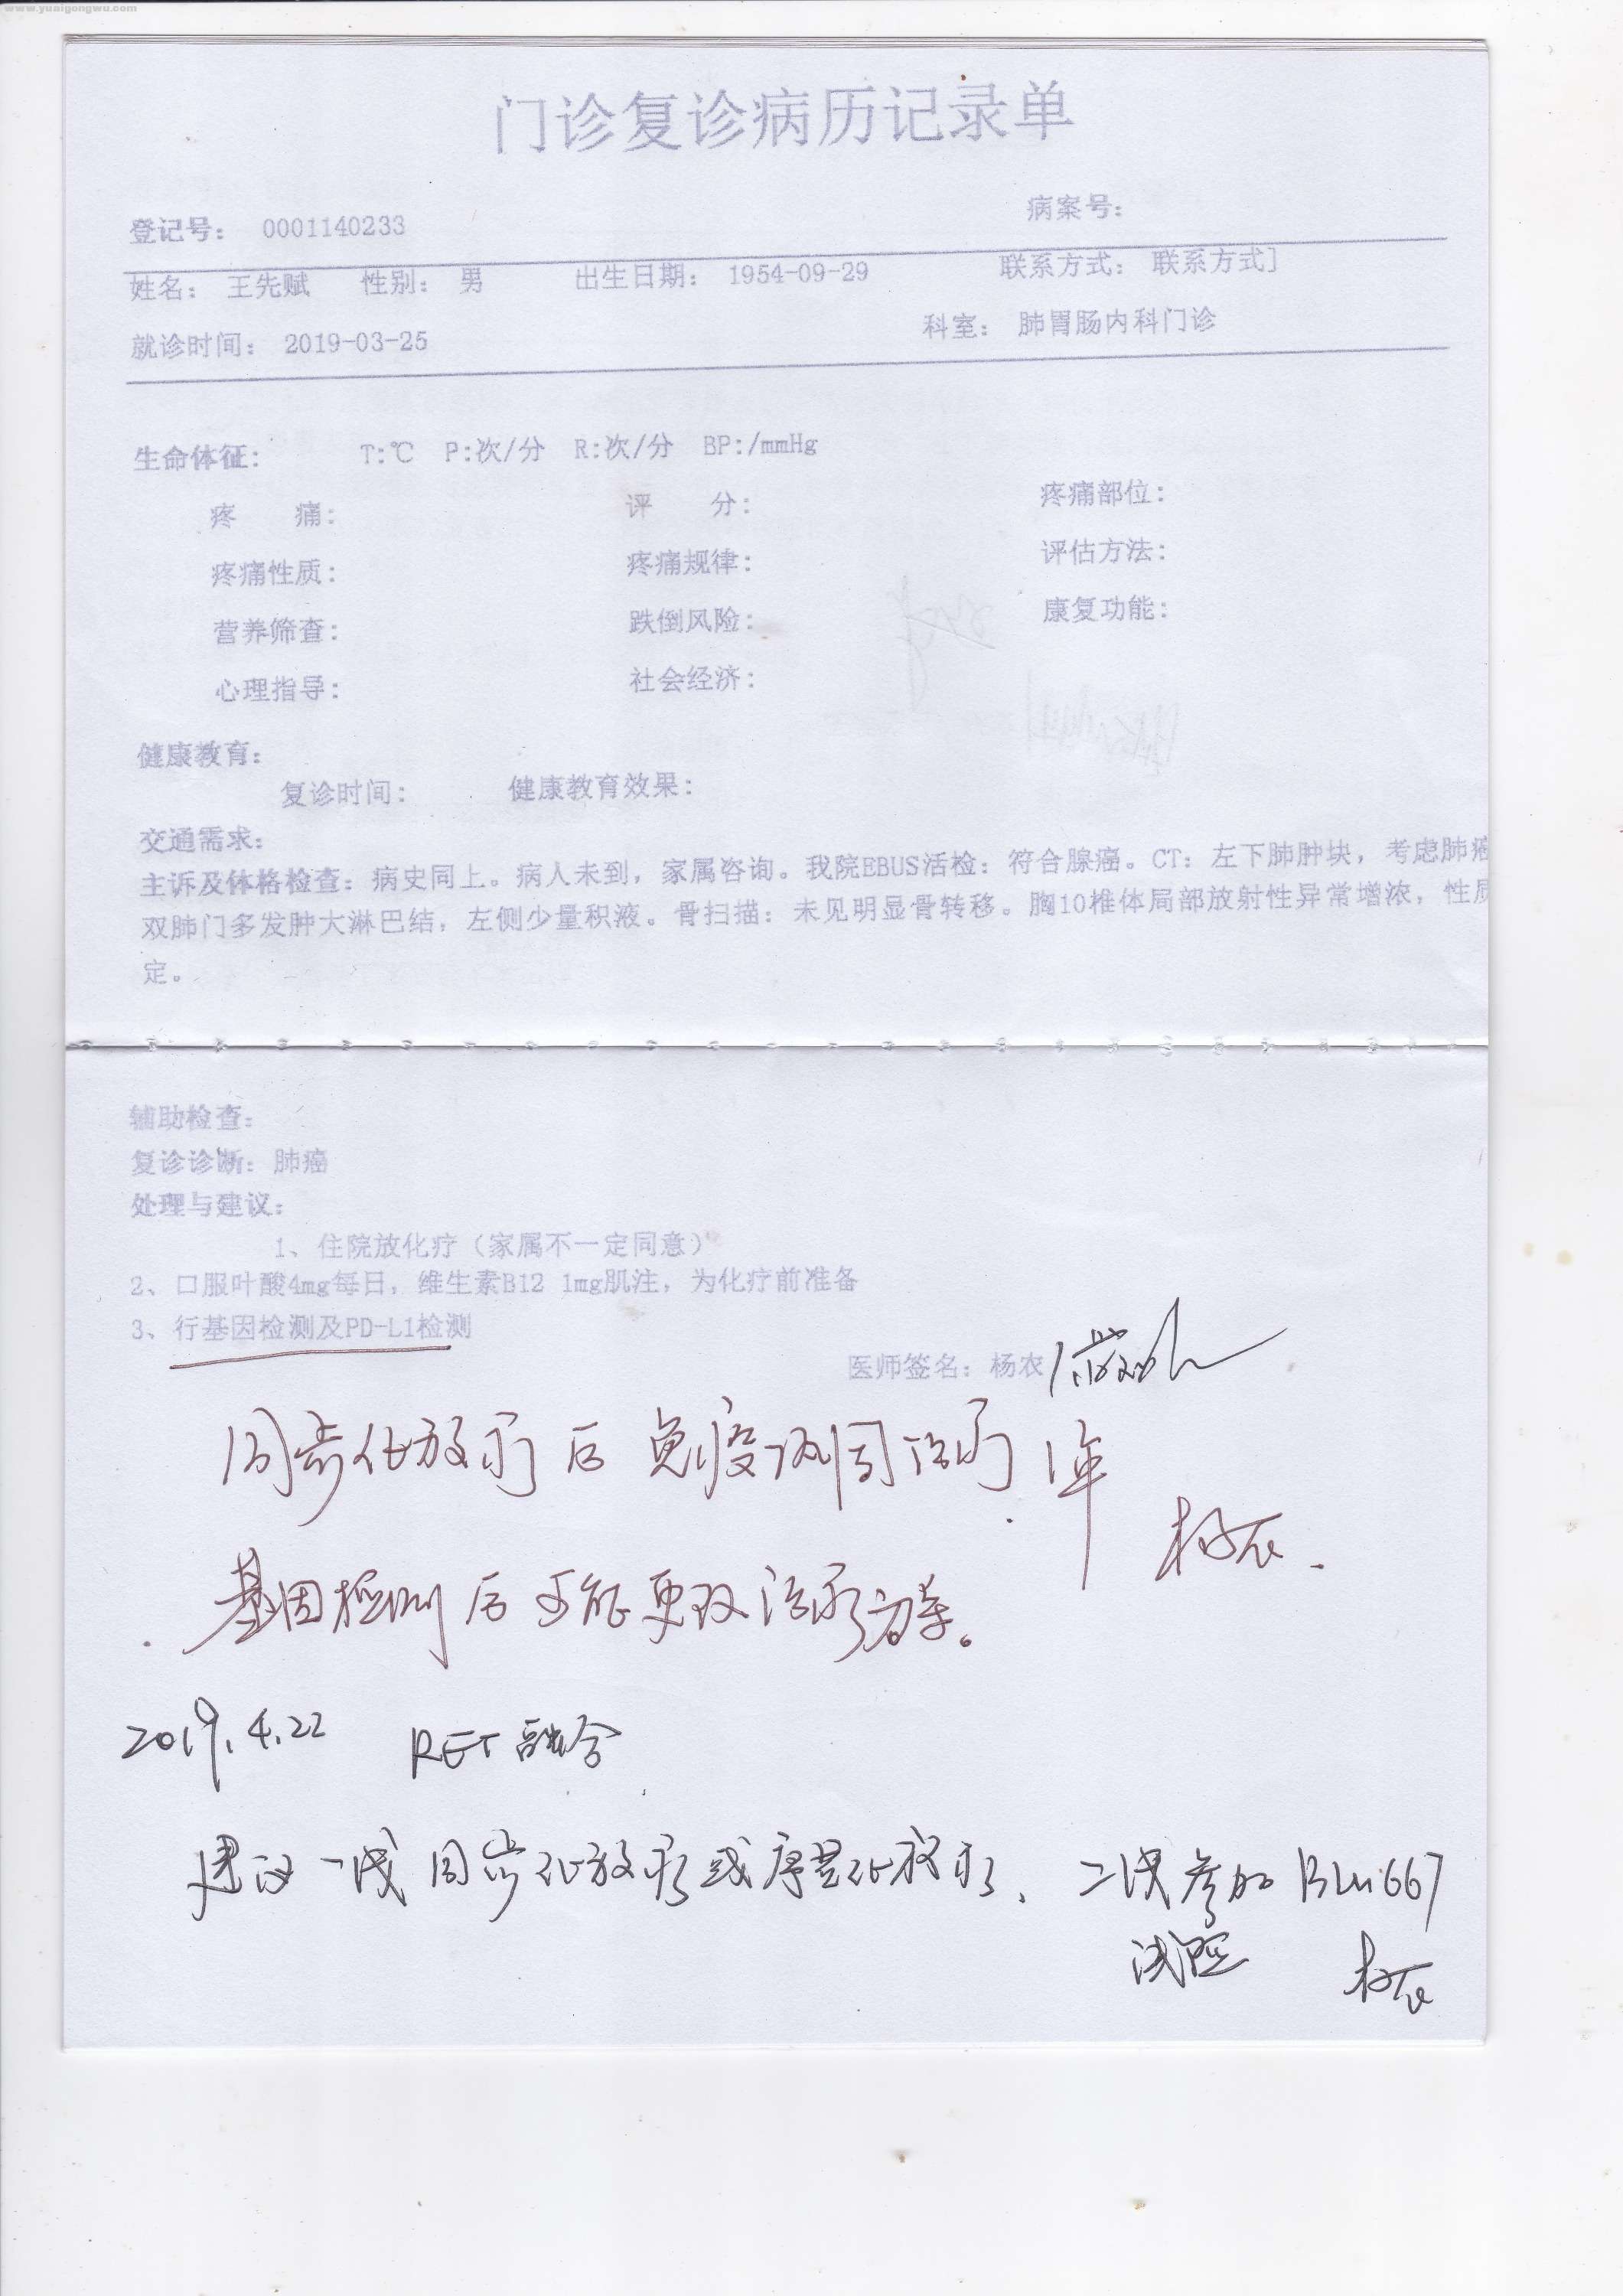 www.yuaigongwu.com
门诊复诊病历记录单
登记号： 0001140233 病案号：
姓名： 王先赋 性别： 男 出生日期： 1954-09-29 联系方式： 联系方式]
就诊时间： 2019-03-25 科室： 肺胃肠内科门诊
生命体征： T:℃ P:次/分 R:次/分 BP:/mmHg
疼 痛： 评 分： 疼痛部位：
疼痛性质： 疼痛规律： 评估方法：
营养筛查： 跌倒风险： 康复功能：
心理指导： 社会经济：
健康教育：
复诊时间： 健康教育效果：
交通需求：
主诉及体格检查：病史同上。病人未到，家属咨询。我院EBUS活检：符合腺癌。CT：左下肺肿块，考虑肺癌
双肺门多发肿大淋巴结，左侧少量积液。骨扫描：未见明显骨转移。胸10椎体局部放射性异常增浓，性质
定。
辅助检查：
复诊诊断：肺癌
处理与建议：
1、住院放化疗（家属不一定同意）
2、口服叶酸4mg每日，维生素B12 1mg肌注，为化疗前准备
3、行基因检测及PD-L1检测
医师签名：杨农
同步化放疗后免疫巩固治疗1年
杨农.
基因检测后可能更改治疗方案。
2019.4.22 RET融合
建议一线同步化放疗或序贯化放疗、二线参加BLU667
试验 杨农